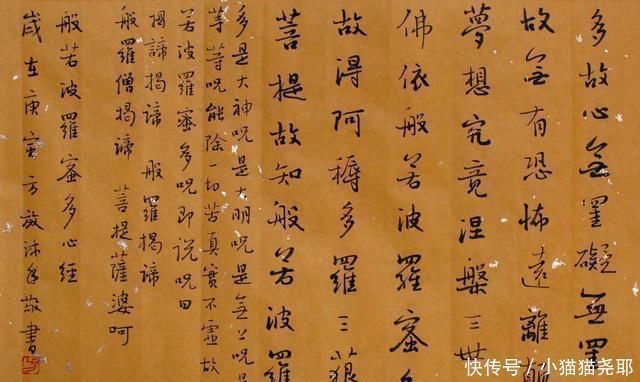 多故心無罣礙無罣
故無有恐怖遠離顛
夢想究竟涅槃三世
佛依般若波羅蜜多
故得阿耨多羅三藐
菩提故知般若波羅
多是大神呪是大明呪是無上呪是
等等呪能除一切苦真實不虛故
若波羅蜜多呪即說呪曰
揭諦揭諦 般羅揭諦
般羅僧揭諦 菩提薩婆呵
般若波羅蜜多心經
歲在庚寅方放沐手敬書
快传号/小猫猫尧耶